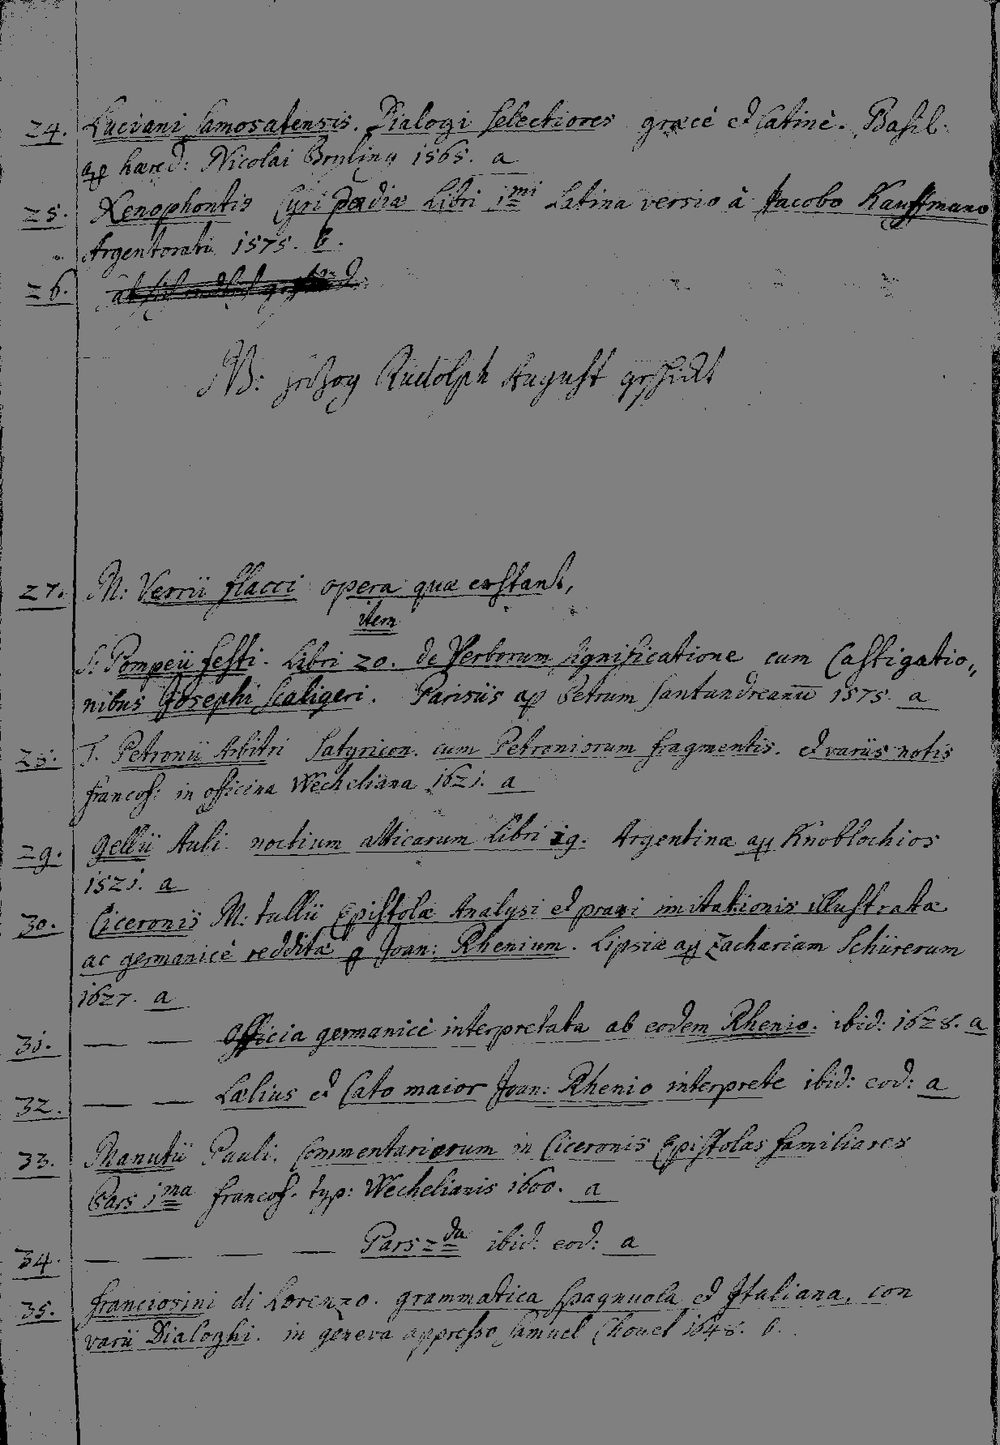 24. Luciani Samosatensis. Dialogi selectiores græcè et latinè. Basil.
ap hæred: Nicolai Bryling 1565. a
25. Xenophontis Cyri pædiæ Libri 1mi Latina versio à Jacobo Kauffmano
Argentorati 1575. b.
26.
NB: Hertzog Rudolph August geschickt
27. M: Verrii flacci opera quæ extant,
item
S: Pompeii festi. Libri 20. de Verborum significatione cum Castigatio„
nibus Josephi Scaligeri. Parisiis ap Petrum Santandreanū 1575. a
28. T. Petronii Arbitri Satyricon. cum Petroniorum fragmentis. et variis notis
francof: in officina Wecheliana 1621. a
29. Gellii Auli. noctium atticarum Libri 19. Argentinæ ap Knoblochios
1521. a
30. Ciceronis M: tullii Epistolæ Analysi et praxi imitationis illustratæ
ac germanicè redditæ p Joan: Rhenium. Lipsiæ ap Zachariam Schürerum
1627. a
31. — — Officia germanicè interpretata ab eodem Rhenio. ibid: 1628. a
32. — — Lælius et Cato maior Joan: Rhenio interprete ibid: eod: a
33. Manutii Pauli. Commentariorum in Ciceronis Epistolas familiares
Pars 1ma francof. typ: Wechelianis 1600. a
34. — — — Pars 2da ibid: eod: a
35. franciosini di Lorenzo. grammatica spagnuola et Italiana, con
varii Dialoghi. in geneva appresso Samuel Chouel 1648. b.